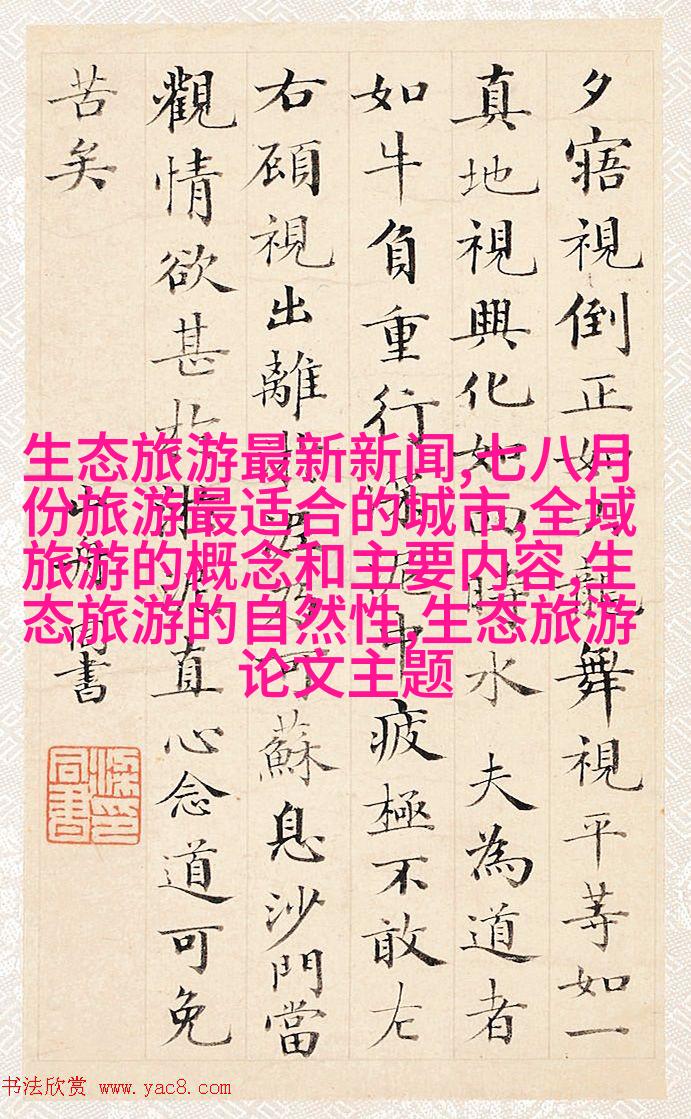 夕寤視倒正如六龍舞視平等如一
真地視興化如四時水夫為道者
如牛負重行深泥中疲極不敢左
右顧視出離淤泥乃可蘇息沙門當
觀情欲甚於淤泥直心念道可免
苦矣
山舟同書
生态旅游最新新闻,七八月
份旅游最适合的城市,全域
旅游的概念和主要内容,生
态旅游的自然性,生态旅游
论文主题
书法欣赏 www.yac8.com